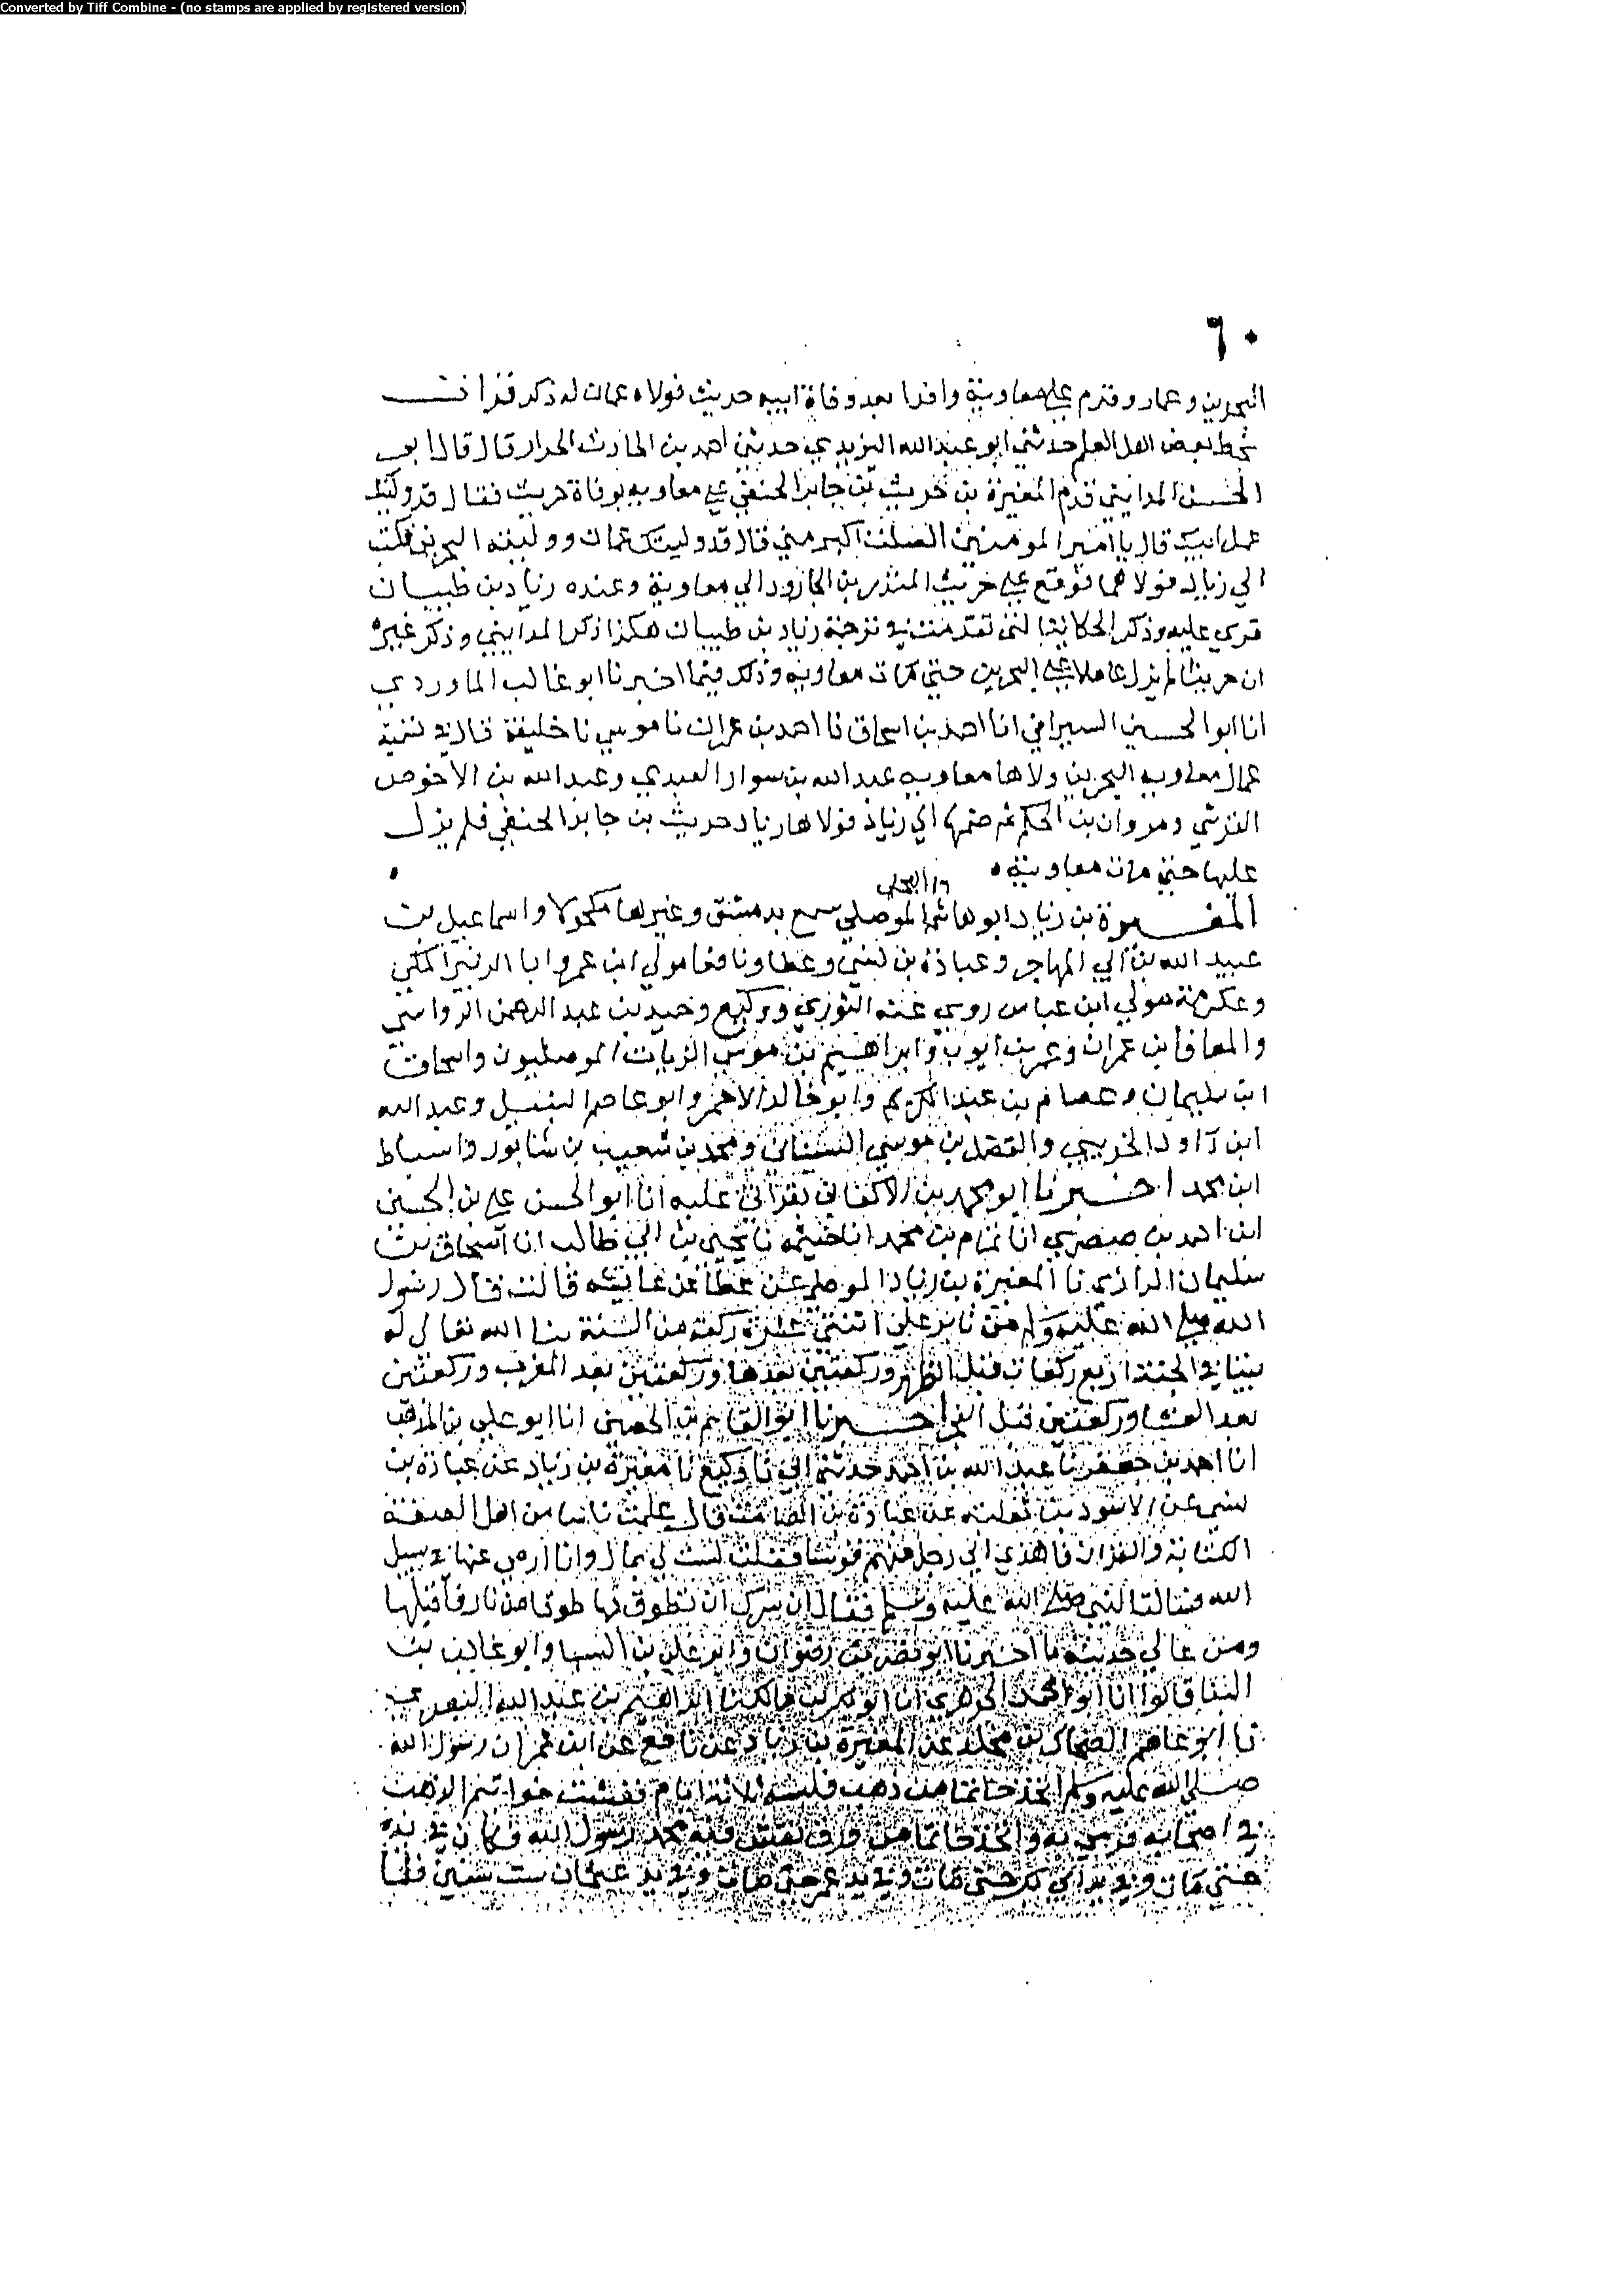 Converted by Tiff Combine - (no stamps are applied by registered version)
٦٠
البحرين وعمان وقدم على معاوية وافدا بعد وفاة ابيه حريث فولاه عمان له ذكر قرات
بخط بعض اهل العلم حدثني ابو عبد الله اليزيدي حدثني احمد بن الحارث الخزاز قال قال ابو
الحسن المدايني قدم المغيرة بن حريث بن جابر الحنفي على معاويه بوفاة حريث فقال قد وليتك
عمل ابيك قال يا امير المومنين الصلت اكبر مني قال قد وليتك عمان ووليته البحرين فكتب
الى زياد فولاهما فوقع على حريث المنذر بن الجارود الى معاوية وعنده زياد بن ظبيان
قرى عليه وذكر الحكاية التي تقدمت في ترجمة زياد بن ظبيان هكذا ذكر المدايني وذكر غيره
ان حريثا لم يزل عاملا على البحرين حتى مات معاوية وذلك فيما اخبرنا ابو غالب الماوردي
انا ابو الحسين السيرافي انا احمد بن اسحاق نا احمد بن عمران نا موسى نا خليفة قال في تسمية
عمال معاويه البحرين ولاها معاويه عبد الله بن سوار العبدي وعبد الله بن الاحوص
القرشي ومروان بن الحكم ثم ضمها الى زياد فولاها زياد حريث بن جابر الحنفي فلم يزل
عليها حتى مات معاوية
المغيرة بن زياد ابو هاشم الموصلي سمع بدمشق وغيرها مكحولا واسماعيل بن
عبيد الله بن ابي المهاجر وعبادة بن نسي وعطا ونافعا مولى ابن عمر وابا الزبير المكي
وعكرمة مولى ابن عباس روى عنه الثوري ووكيع وحميد بن عبد الرحمن الرواسي
والمعافا بن عمران وعمر بن ايوب وابراهيم بن موسى الزيات الموصليون واسحاق
ابن سليمان وعصام بن عبد الكريم وابو خالد الاحمر وابو عاصم النبيل وعبد الله
ابن داود الخريبي والفضل بن موسى السيناني ومحمد بن شعيب بن شابور واسباط
ابن محمد اخبرنا ابو محمد بن الاكفاني بقراتي عليه انا ابو الحسن علي بن الحسين
ابن احمد بن صصري انا تمام بن محمد انا خيثمة نا يحيى بن ابي طالب انا اسحاق بن
سليمان الرازي نا المغيرة بن زياد الموصلي عن عطا عن عايشه قالت قال رسول
الله صلى الله عليه وسلم من ثابر على اثنتي عشرة ركعة من السنة بنا الله تعالى له
بيتا في الجنة اربع ركعات قبل الظهر وركعتين بعدها وركعتين بعد المغرب وركعتين
بعد العشا وركعتين قبل الفجر اخبرنا ابو القاسم بن الحصين انا ابو علي بن المذهب
انا احمد بن جعفر نا عبد الله بن احمد حدثني ابي نا وكيع نا مغيرة بن زياد عن عبادة بن
نسي عن الاسود بن ثعلبه عن عبادة بن الصامت قال علمت ناسا من اهل الصفة
الكتابة والقران فاهدى الي رجل منهم قوسا فقلت ليست لي بمال وانا ارمي عنها في سبيل
الله فسالت النبي صلى الله عليه وسلم فقال ان سرك ان تطوق بها طوقا من نار فاقبلها
ومن عالي حديثه ما اخبرنا ابو نصر بن رضوان وابو علي بن السبط وابو غالب بن
البنا قالوا انا ابو محمد الجوهري انا ابو بكر بن مالك نا ابراهيم بن عبد الله البصري
نا ابو عاصم الضحاك بن مخلد عن المغيرة بن زياد عن نافع عن ابن عمر ان رسول الله
صلى الله عليه وسلم اتخذ خاتما من ذهب فلبسه ثلاثة ايام ففشت خواتيم الذهب
في اصحابه فرمى به واتخذ خاتما من ورق نقش فيه محمد رسول الله فكان في يده
حتى مات وفي يد ابي بكر حتى مات وفي يد عمر حتى مات وفي يد عثمان ست سنين فلما